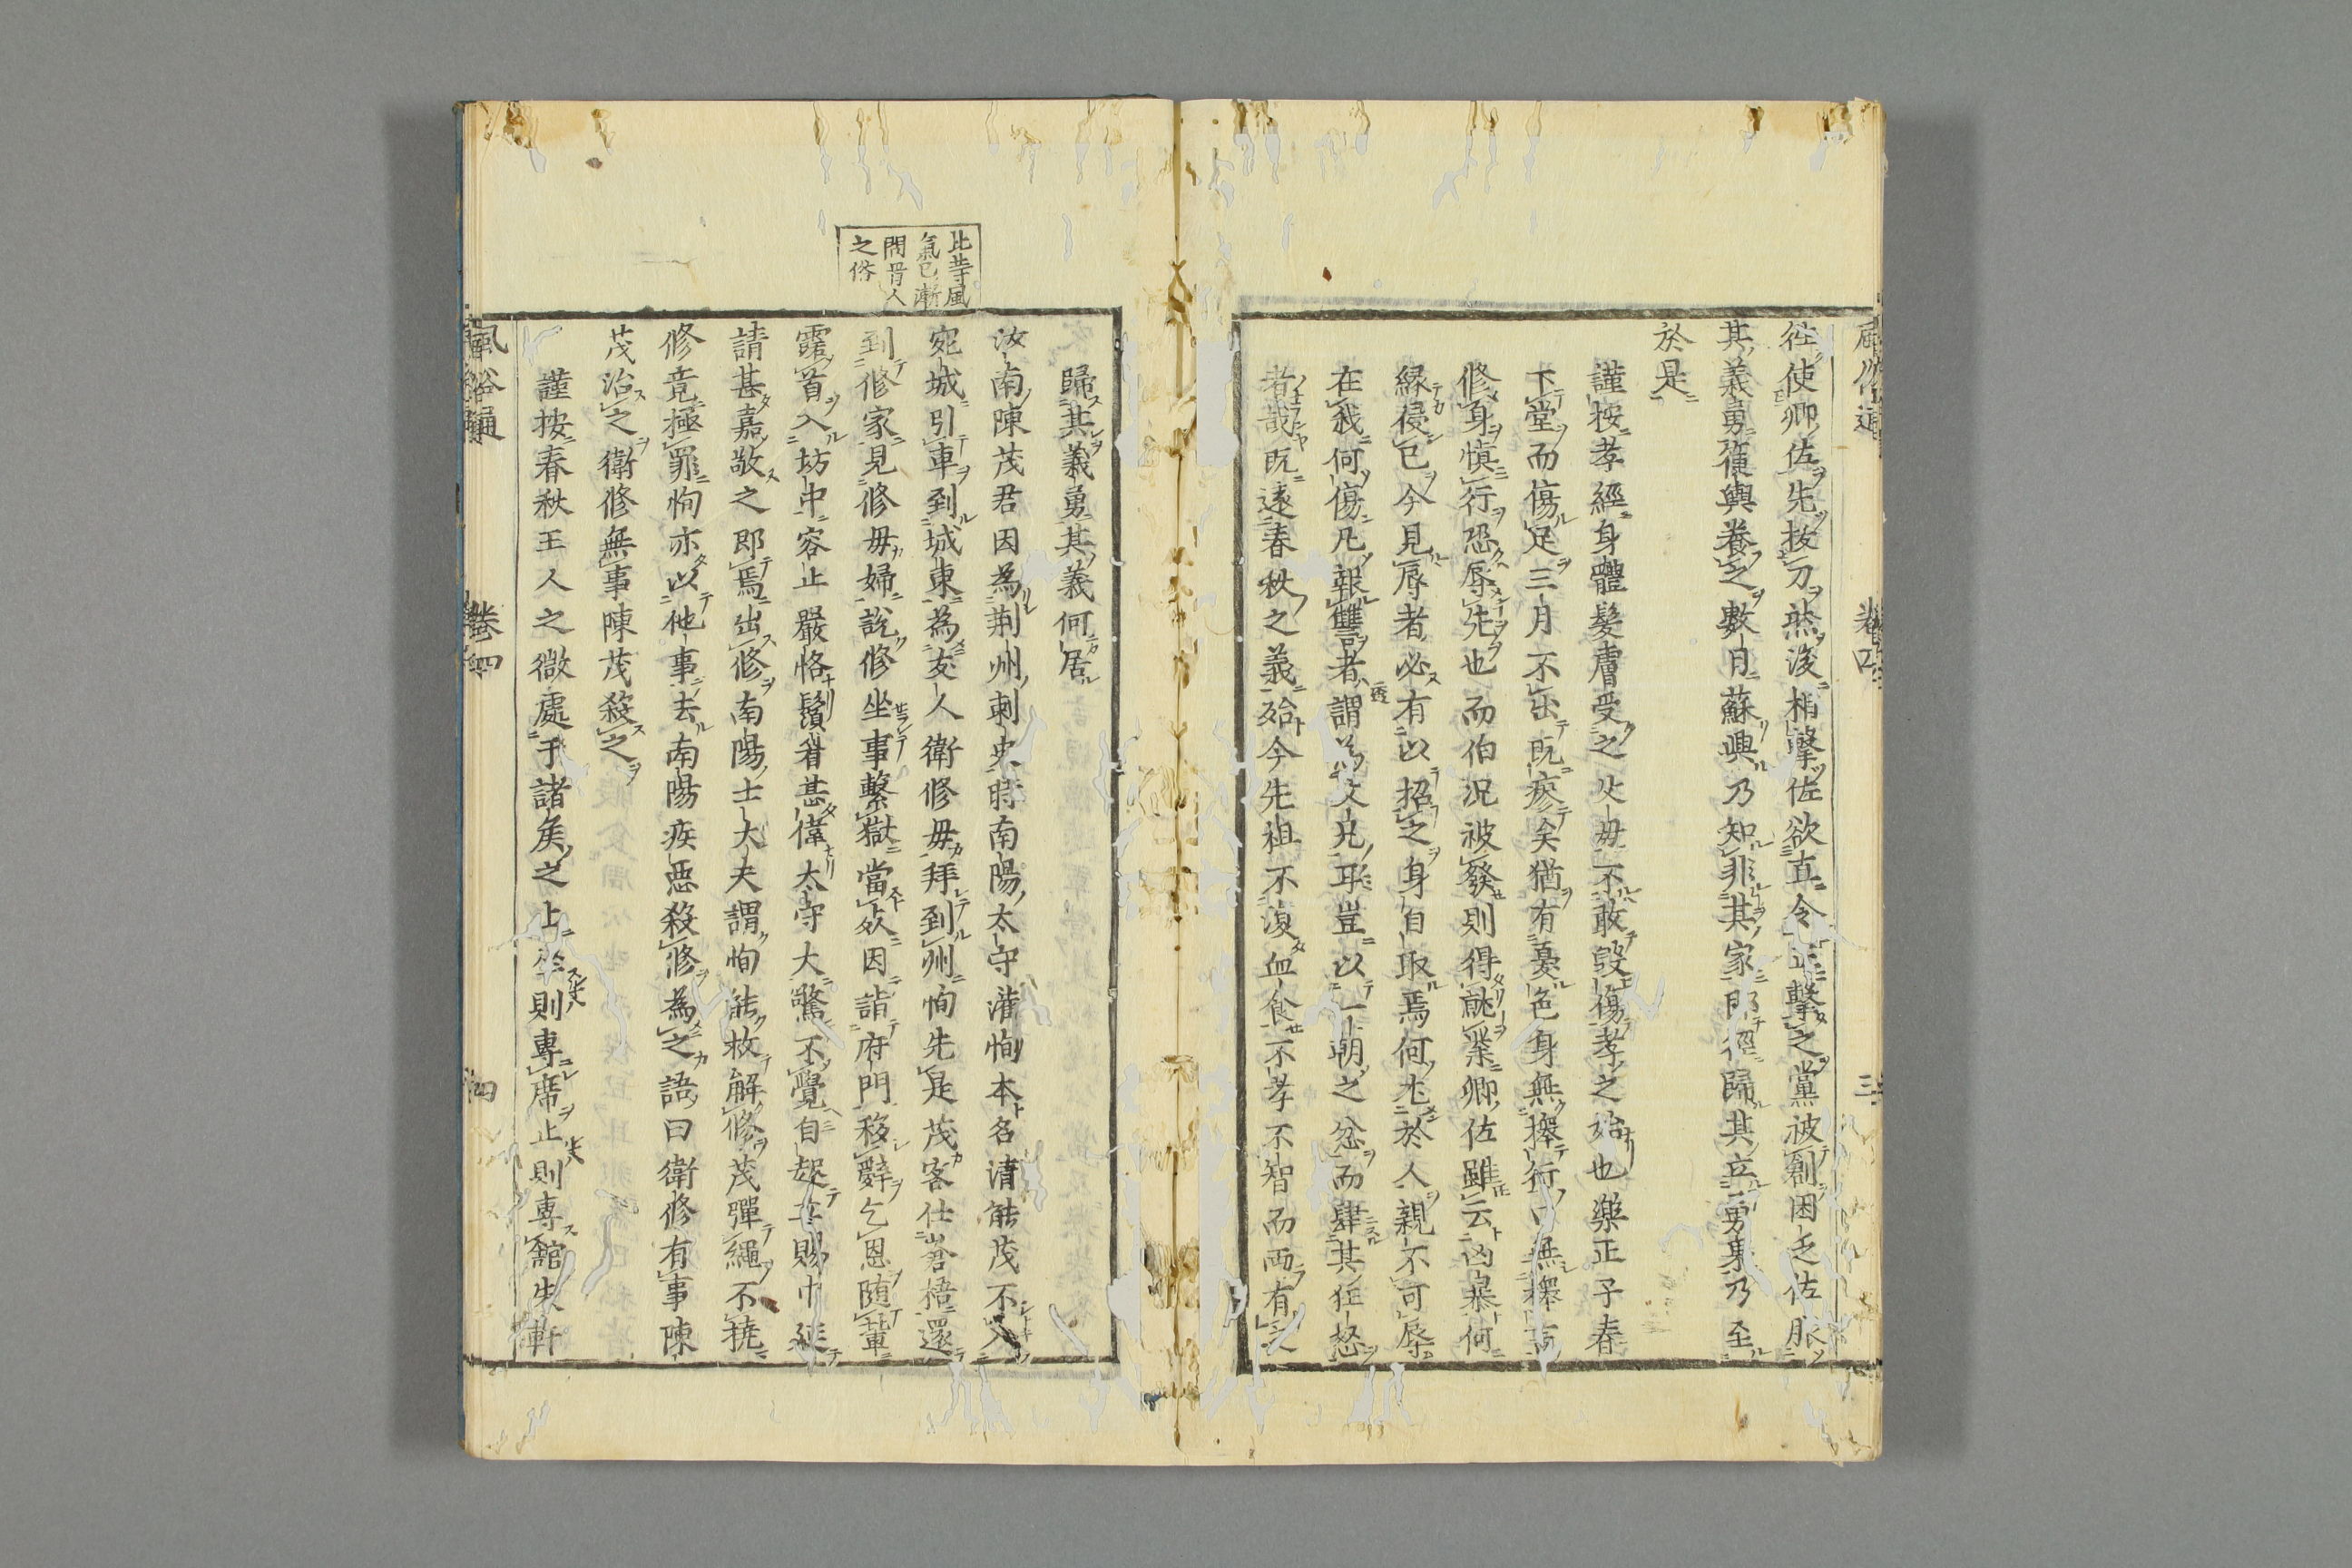 徃使卿佐先拔刀然後相擊佐欲直令正擊之黨被創困乏佐服
其義勇箯輿養之數月蘇興乃知非其家即徑歸其立勇果乃至
於是
謹按孝經身體髮膚受之父毋不敢毀傷孝之始也樂正子春
下堂而傷足三月不出既瘳矣猶有憂色身無擇行口無擇言
修身慎行恐辱先也而伯況被發則得就業卿佐雖云凶暴何
緣侵已今見辱者必有以招之身自取焉何尤於人親不可辱
在我何傷凡報讐者謂為父兄耳豈以一朝之忿而肆其狂怒
者哉既遠春秋之義殆令先祖不復血食不孝不智而兩有之
歸其義勇其義何居
比等風
氣已漸
開晉人
之俗
汝南陳茂君因為荆州刺史時南陽太守灌恂本名清能茂不入
宛城引車到城東為友人衛修毋拜到州恂先是茂客仕蒼梧還
到修家見修毋婦說修坐事繫獄當死因詣府門移辭乞恩随輩
露首入坊中容止嚴恪鬚眉甚偉太守大驚不覺自起立賜巾延
請甚嘉敬之即焉出修南陽士大夫謂恂能救解修茂彈繩不撓
修竟極罪恂亦以他事去南陽疾惡殺修為之語曰衛修有事陳
茂治之衛修無事陳茂殺之
謹按春秋王人之微處于諸矦之上坐則專席止則專舘朱軒
風俗通
卷四
四